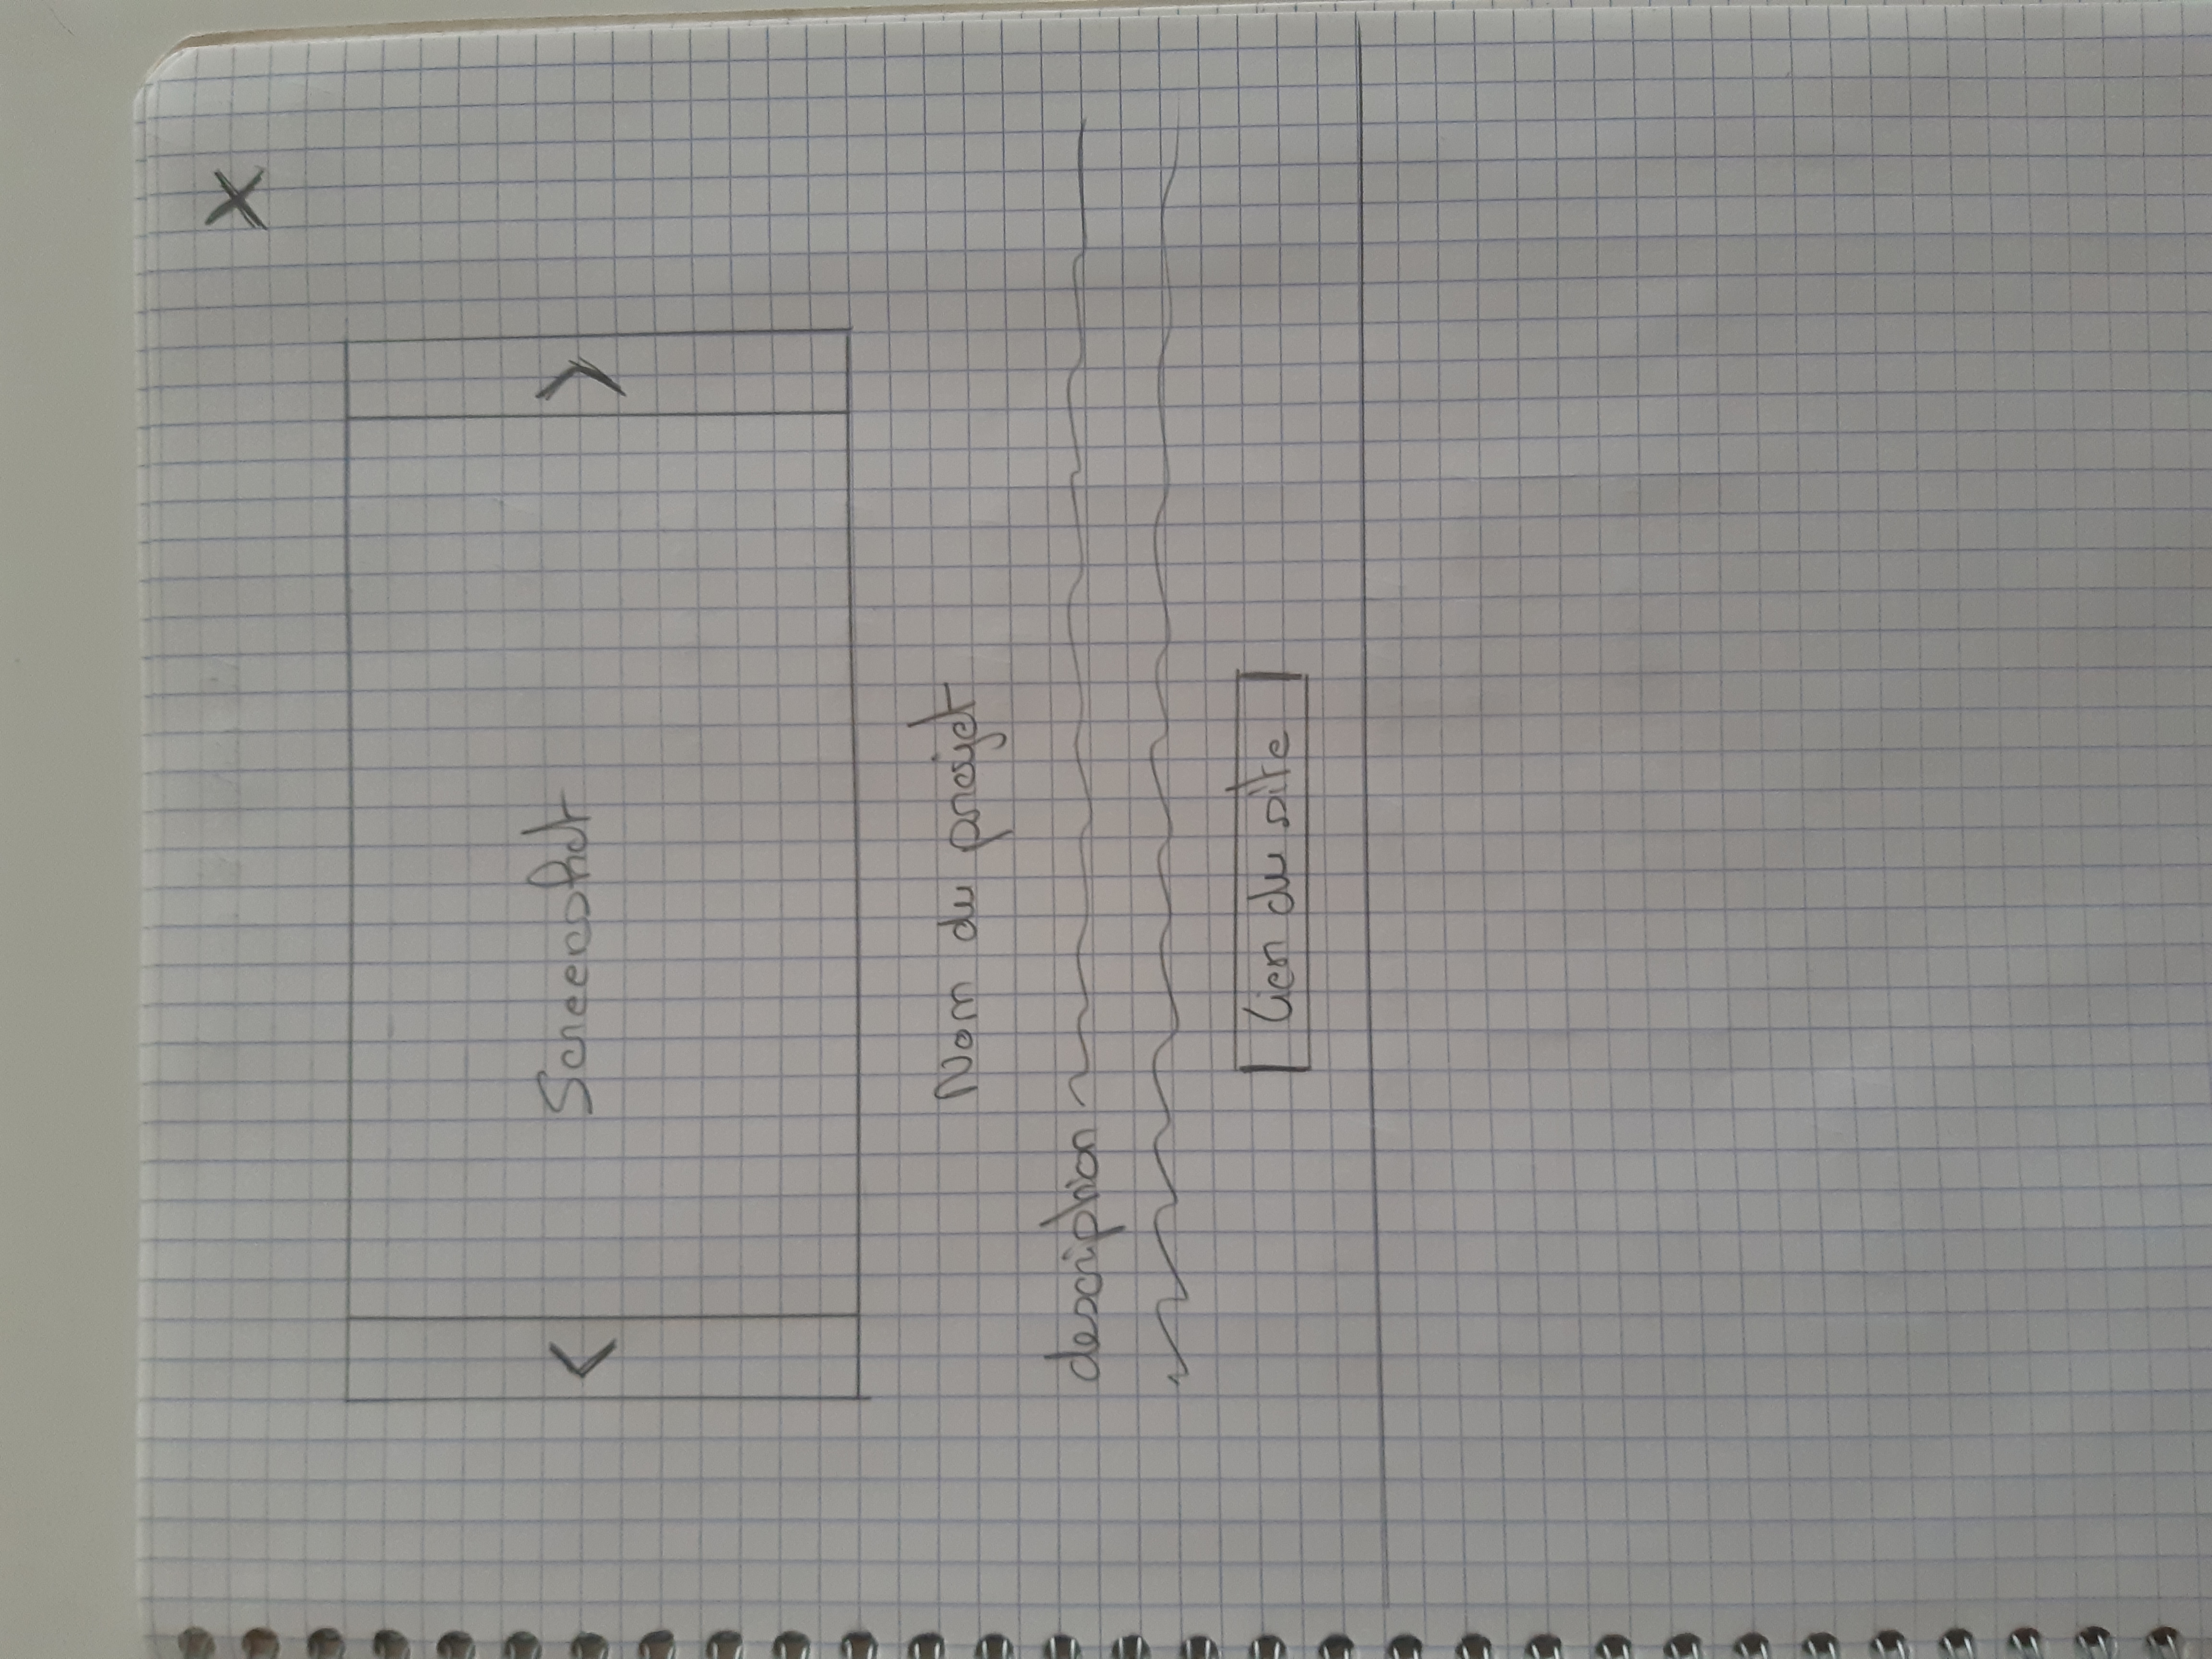 X
< Screenshot >
Nom du projet
description
lien du site